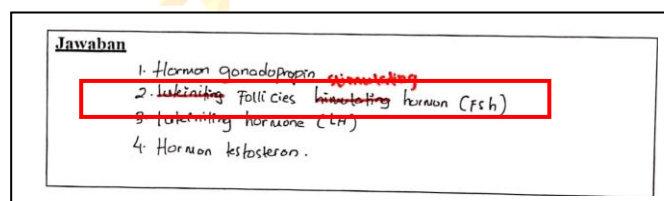 Jawaban
1. Hormon gonadopropin
stimulating
2. Lukiniting Follicies himulating hormon (Fsh)
3. Lukeiniting hormone (LH)
4. Hormon testosteron.